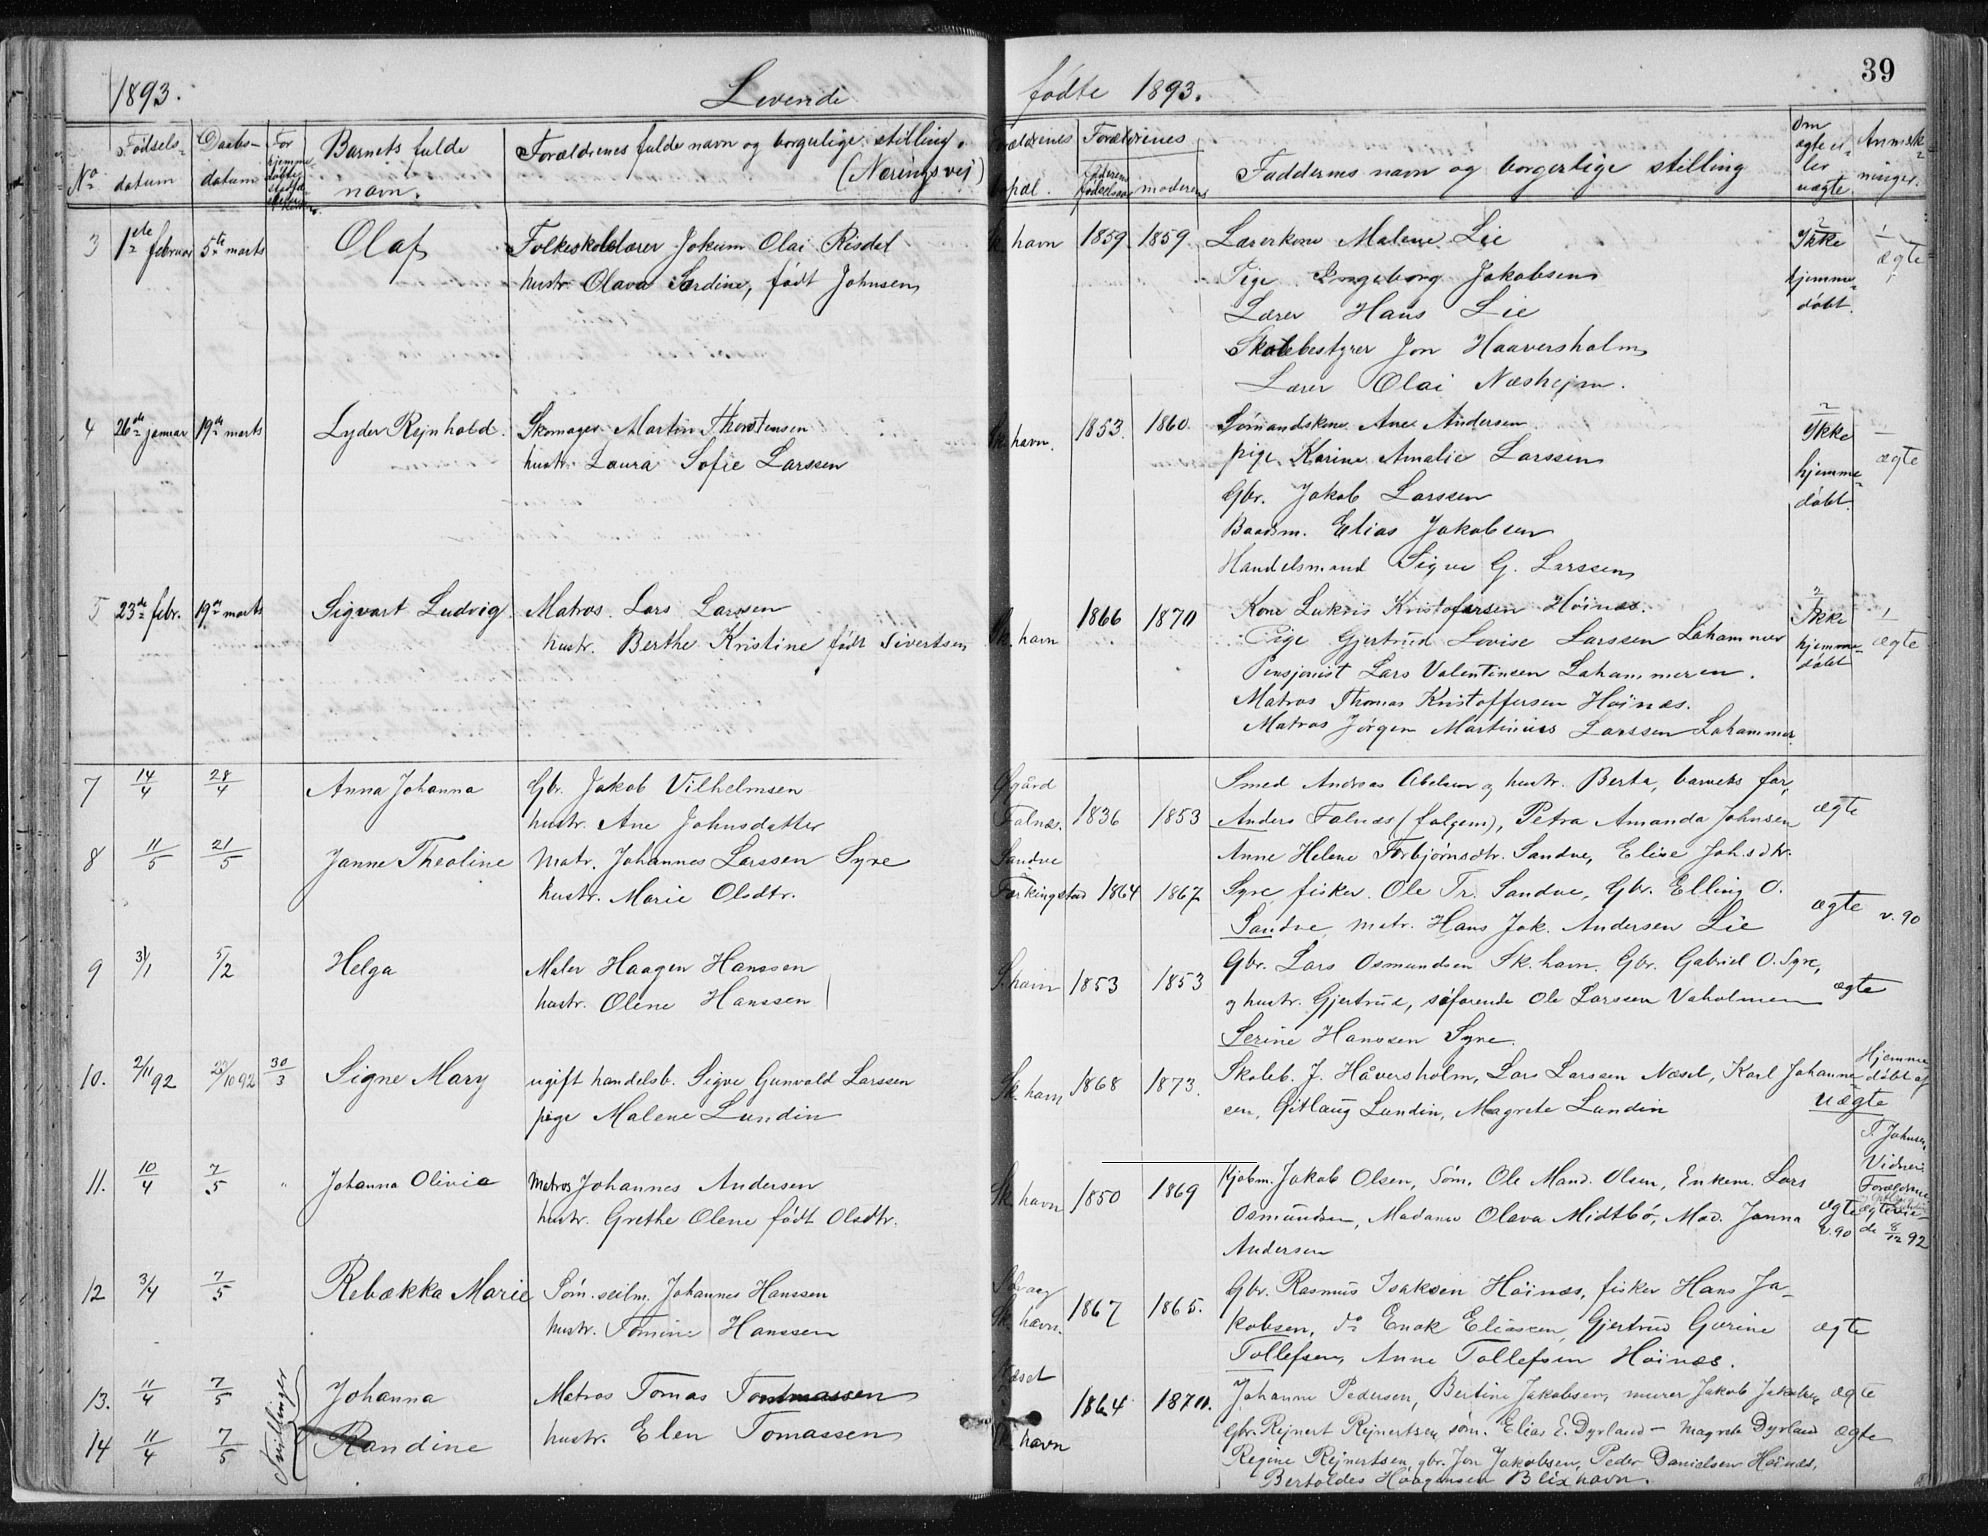 1893.
Levende
fødte 1893.
39
No
Fødsels-
datum
Daabs-
datum
For
hjemme
døbte
Barnets fulde
navn.
Forældrenes fulde navn og borgerlige stilling.
(Næringsvej)
Forældrenes
bopæl.
Forældrenes
faderens
fødselsaar
moderens
Faddernes navn og borgerlige stilling
Om
ægte el-
ler
uægte
Anmærk-
ninger.
3 1ste februar 5te marts Olaf Folkeskolelærer Jokum Olai Risdal Sk. havn 1859 1859 Lærerkone Malene Lie Ikke ægte
hustr. Olava Serdine, født Johnsen Pige Ingeborg Jakobsen hjemme-
Lærer Hans Lie døbt.
Skolebestyrer Jon Haaversholm
Lærer Olai Næshejm.
4 26de januar 19de marts Lyder Rejnhold. Skomager Martin Thorstensen Sk. havn. 1853. 1860. Sømandskone Ane Andersen Ikke ægte
hustr. Laura Sofie Larssen pige Karine Amalie Larssen hjemme-
Gbr. Jakob Larssen døbt.
Baadsm. Elias Jakobsen
Handelsmand Sigve G. Larssen
5 23de febr. 19de marts Sigvart Ludvig. Matros Lars Larssen Sk. havn 1866 1870 Kone Lukris Kristofersen Høinæs. Ikke ægte
hustr. Berthe Kristine født Sivertsen Pige Gjertrud Lovise Larssen Lahammer hjemme-
Pensjonist Lars Valentinsen Lahammeren. døbt
Matros Thomas Kristoffersen Høinæs.
Matros Jørgen Martinius Larssen Lahammer.
7 14/4 28/4 Anna Johanna Gbr. Jakob Vilhelmsen Øgård 1836 1853 Smed Andreas Abelsen og hustr. Berta, barnets far, ægte
hustr. Ane Johnsdatter Falnæs. Anders Falnæs (følgem), Petra Amanda Johnsen
8 11/5 21/5 Janne Theoline Matr. Johannes Larssen Syre Sandve Anne Helene Torbjørnsdtr. Sandve, Elise Johsdtr.
hustr. Marie Olsdtr. Førkingstad 1864 1867 Syre, fisker Ole Tr. Sandve, Gbr. Elling O. ægte v. 90
Sandve, matr. Hans Jak. Andersen Lie
9 31/1 5/2 Helga Maler Haagen Hanssen S. havn 1853 1853 Gbr. Lars Osmundsen Sk. havn. Gbr. Gabriel O. Syre, ægte
hustr. Olene Hanssen og hustr. Gjertrud, søfarende Ole Larssen Vaholmen
Serine Hanssen Syre.
10. 2/11 92 /10 92 30/3 Signe Mary ugift handelsb. Sigve Gunvald Larssen Sk. havn 1868 1873. Skoleb. J. Håversholm, Lars Larssen Næset, Karl Johanne- Hjemme
pige Malene Lundin sen, Gitlaug Lundin, Magrete Lundin uægte døbt af
T. Johnsen,
Vidner:
Forældrene
11. 10/4 7/5 " Johanna Olivia Matros Johannes Andersen Sk. havn 1850 1869 Kjøbm. Jakob Olsen, Søm. Ole Mand. Olsen, Enkem. Lars ægte
hustr. Grethe Olene født Olsdtr. Osmundsen, Madame Olava Midtbø, Mad. Janna v. 90 de 8/12 92
Andersen
12 3/4 7/5 Rebækka Marie Søm. seilm. Johannes Hanssen Sk. havn. 1867 1865. Gbr. Rasmus Isaksen Høinæs, fisker Hans Ja-
hustr. Tomine Hanssen kobsen, do Enok Eliassen, Gjertrud Gurine ægte
Tollefsen, Anne Tollefsen Høinæs.
13. 11/4 7/5 Tvillinger Johanna Matros Tomas Tommassen Næset 1864 1870. Johanne Pedersen, Bertine Jakobsen, murer Jakob Jakobsen ægte
14 11/4 7/5 Randine hustr. Elen Tomassen Sk. havn Gbr. Rejnert Rejnertsen, søm. Elias E. Dyrland - Magrete Dyrland ægte
Regine Rejnertsen, gbr. Jon Jakobsen, Peder Danielsen Høinæs,
Bertoldes Håagensen Blixhavn.